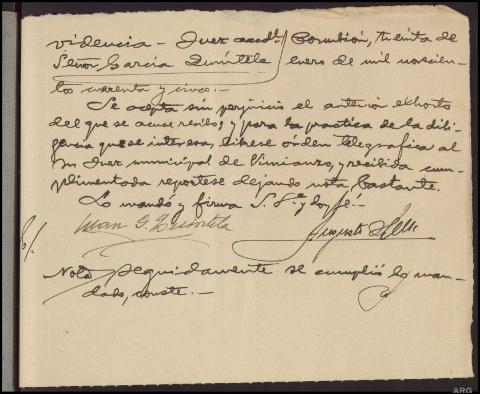 videncia - Juez accdl. Corcubión, treinta de
Señor García Quintela enero de mil novecien-
tos cuarenta y cinco.-
Se acepta sin perjuicio el anterior exhorto
del que se acuse recibo; y para la práctica de la dili-
gencia que se interesa, líbrese órden telegráfica al
Sr Juez municipal de Vimianzo, y recibida cum-
plimentada repórtese dejando nota bastante.
Lo mandó y firma S. Sª. y doy fé.-
Juan G. Quintela Augusto
Nota Seguidamente se cumplió lo man-
dado, conste.-
ARG